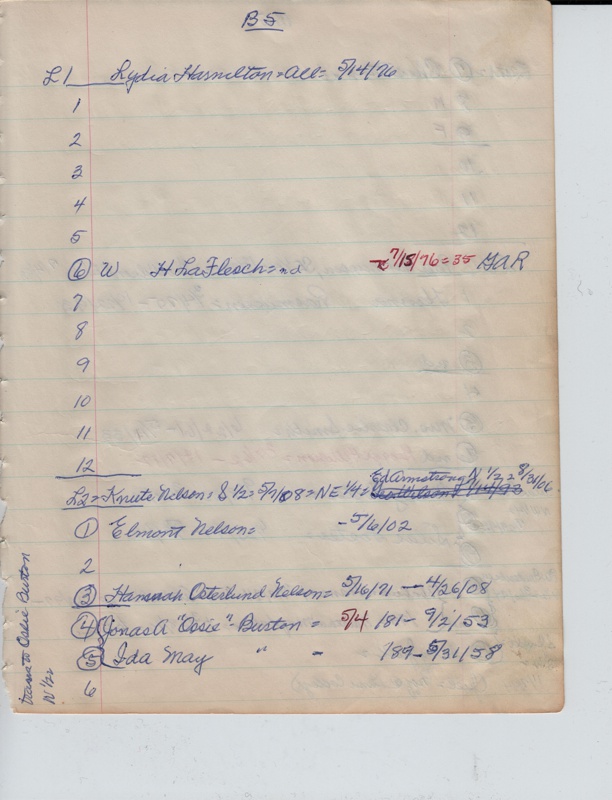 B5
L1 Lydia Hamilton = all = 5/14/76
1
2
3
4
5
6 W H LaFlesch = nd 7/15/76 = 35 GAR
7
8
9
10
11
12
Ed Armstrong N 1/2 = 8/31/06
L2 = Knute Nelson = S 1/2 = 5/7/08 = NE 1/4 =
1 Elmont Nelson = - 5/6/02
2
3 Hannah Osterlund Nelson = 5/16/71 - 4/26/08
4 Jonas A "Ossie" - Burton = 5/4 181 - 9/2/53
5 Ida May " - 189 - 5/31/58
6
trans to Ossie Burton
N 1/2